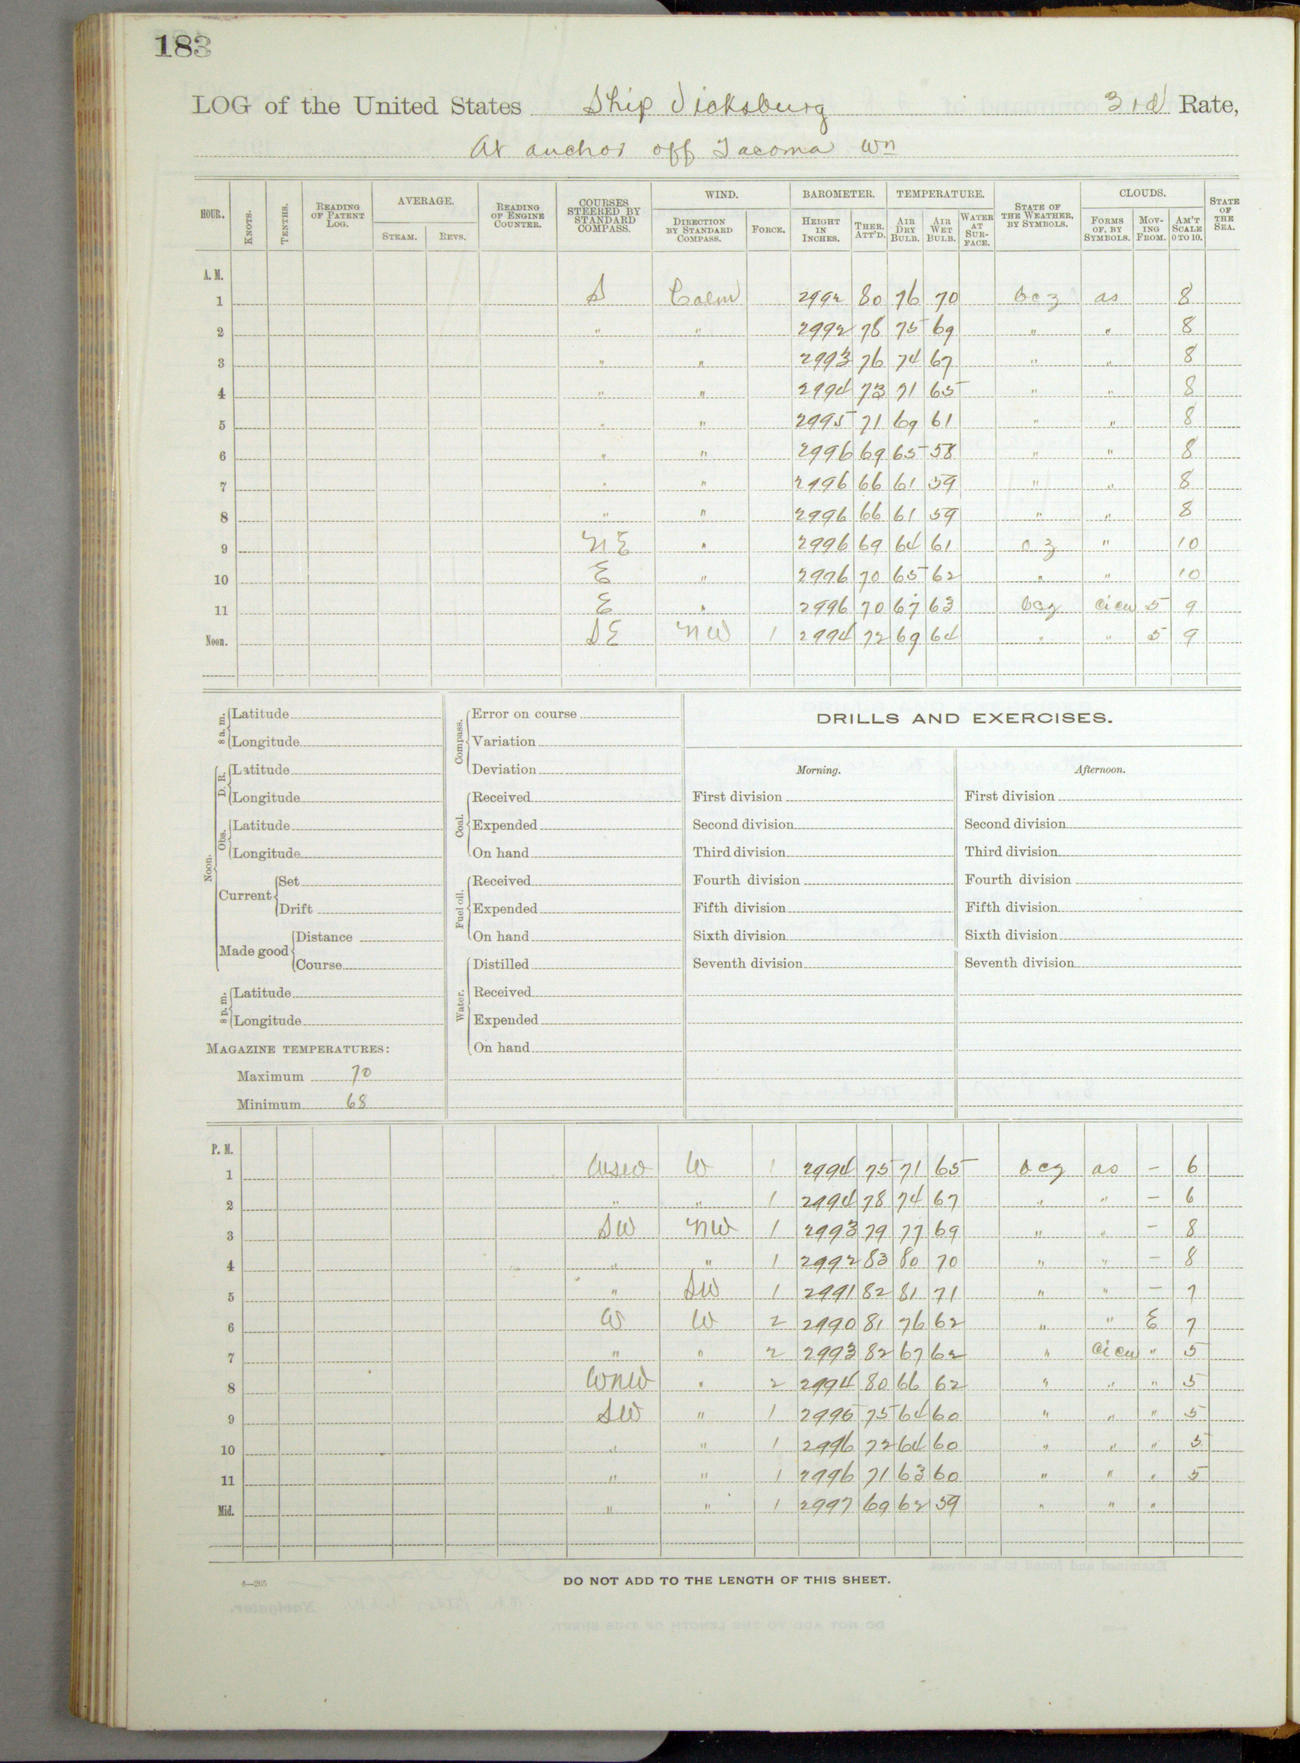 183
LOG of the United States Ship Vicksburg 3rd Rate,
At anchor off Tacoma Wn
HOUR. KNOTS. TENTHS. READING OF PATENT LOG. AVERAGE. STEAM. REVS. READING OF ENGINE COUNTER. COURSES STEERED BY STANDARD COMPASS. WIND. DIRECTION BY STANDARD COMPASS. FORCE. BAROMETER. HEIGHT IN INCHES. THER. ATT'D. TEMPERATURE. AIR DRY BULB. AIR WET BULB. WATER AT SURFACE. STATE OF THE WEATHER, BY SYMBOLS. CLOUDS. FORMS OF, BY SYMBOLS. MOVING FROM. AM'T SCALE 0 TO 10. STATE OF THE SEA.
A. M.
1 S Calm 2992 80 76 70 bcz as 8
2 " " 2992 78 75 69 " " 8
3 " " 2993 76 74 67 " " 8
4 " " 2994 73 71 65 " " 8
5 " " 2995 71 69 61 " " 8
6 " " 2996 69 65 58 " " 8
7 " " 2996 66 61 59 " " 8
8 " " 2996 66 61 59 " " 8
9 NE " 2996 69 64 61 cz " 10
10 E " 2996 70 65 62 " " 10
11 E " 2996 70 67 63 bcz cicu 5 9
Noon. SE NW 1 2994 72 69 64 " " 5 9
8 a. m. Latitude
Longitude
Noon. D. R. Latitude
Longitude
Obs. Latitude
Longitude
Current Set
Drift
Made good Distance
Course
8 p. m. Latitude
Longitude
MAGAZINE TEMPERATURES:
Maximum 70
Minimum 68
Compass. Error on course
Variation
Deviation
Coal. Received
Expended
On hand
Fuel oil. Received
Expended
On hand
Water. Distilled
Received
Expended
On hand
DRILLS AND EXERCISES.
Morning.
First division
Second division
Third division
Fourth division
Fifth division
Sixth division
Seventh division
Afternoon.
First division
Second division
Third division
Fourth division
Fifth division
Sixth division
Seventh division
P. M.
1 WSW W 1 2994 75 71 65 bcz as — 6
2 " " 1 2994 78 74 67 " " — 6
3 SW NW 1 2993 79 77 69 " " — 8
4 " " 1 2992 83 80 70 " " — 8
5 " SW 1 2991 82 81 71 " " — 7
6 W W 2 2990 81 76 62 " " E 7
7 " " 2 2993 82 67 62 " cicu " 5
8 WNW " 2 2994 80 66 62 " " " 5
9 SW " 1 2995 75 64 60 " " " 5
10 " " 1 2996 72 64 60 " " " 5
11 " " 1 2996 71 63 60 " " " 5
Mid. " " 1 2997 69 62 59 " " "
6—265
DO NOT ADD TO THE LENGTH OF THIS SHEET.